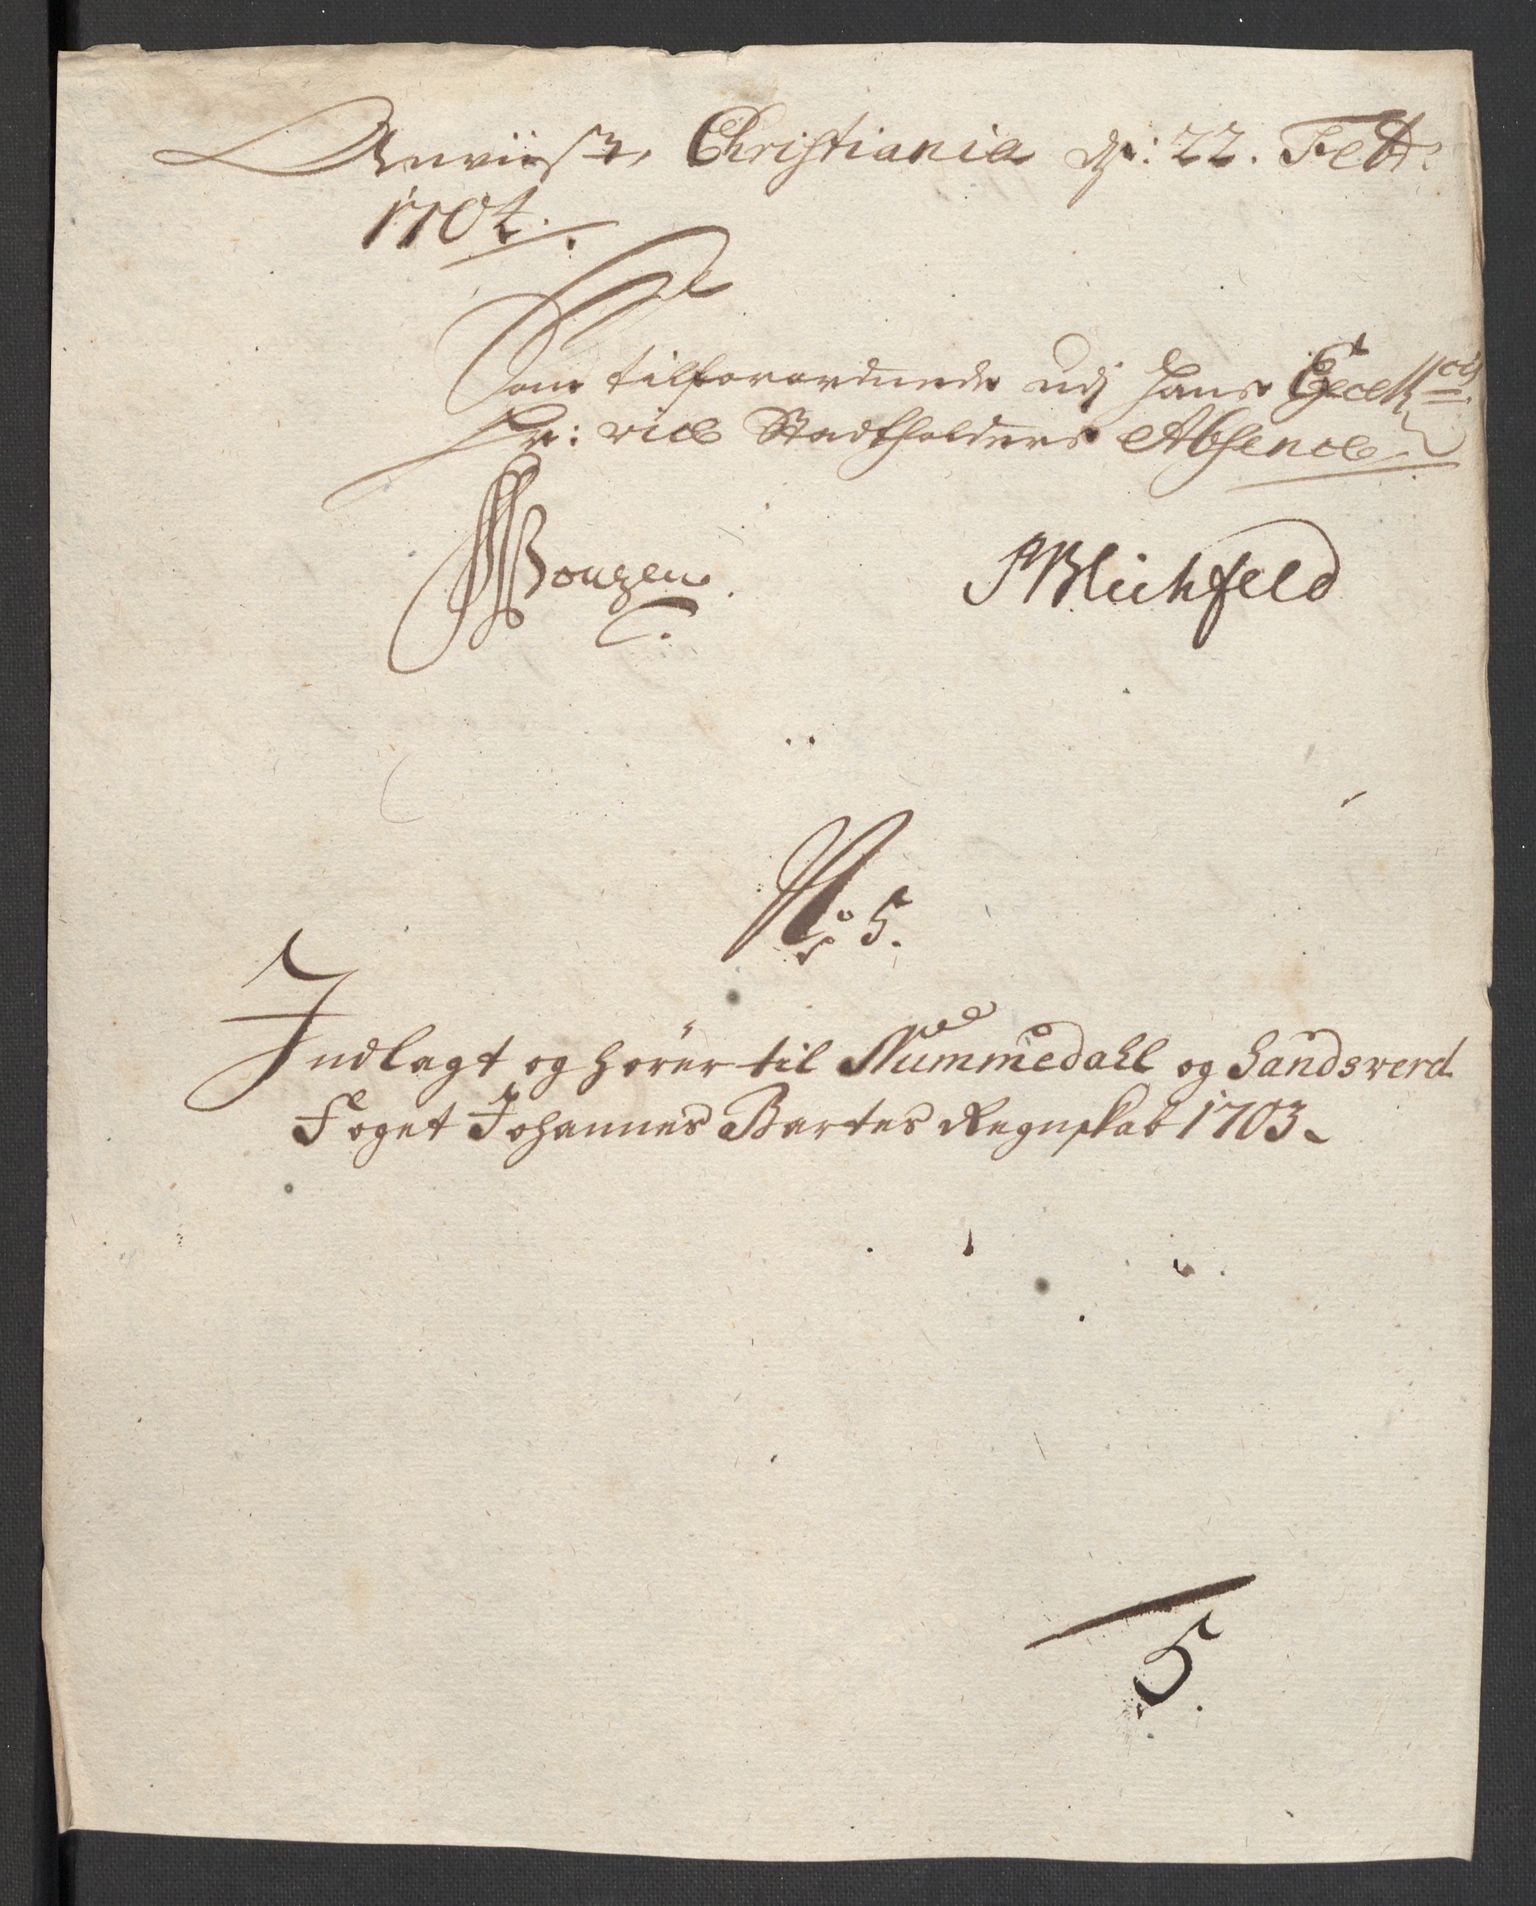 Anviist, Christiania dn: 22. Febr:
1704.
Som tilforordnede udj Hans Excell:ces
Hr: vice Stadtholders Absence
Bougen.
PBlichfeld
No: 5.
Indlagt og hører til Nummedahl og Sandsverd
Foget Johannes Bartes Regnskab 1703.
5.